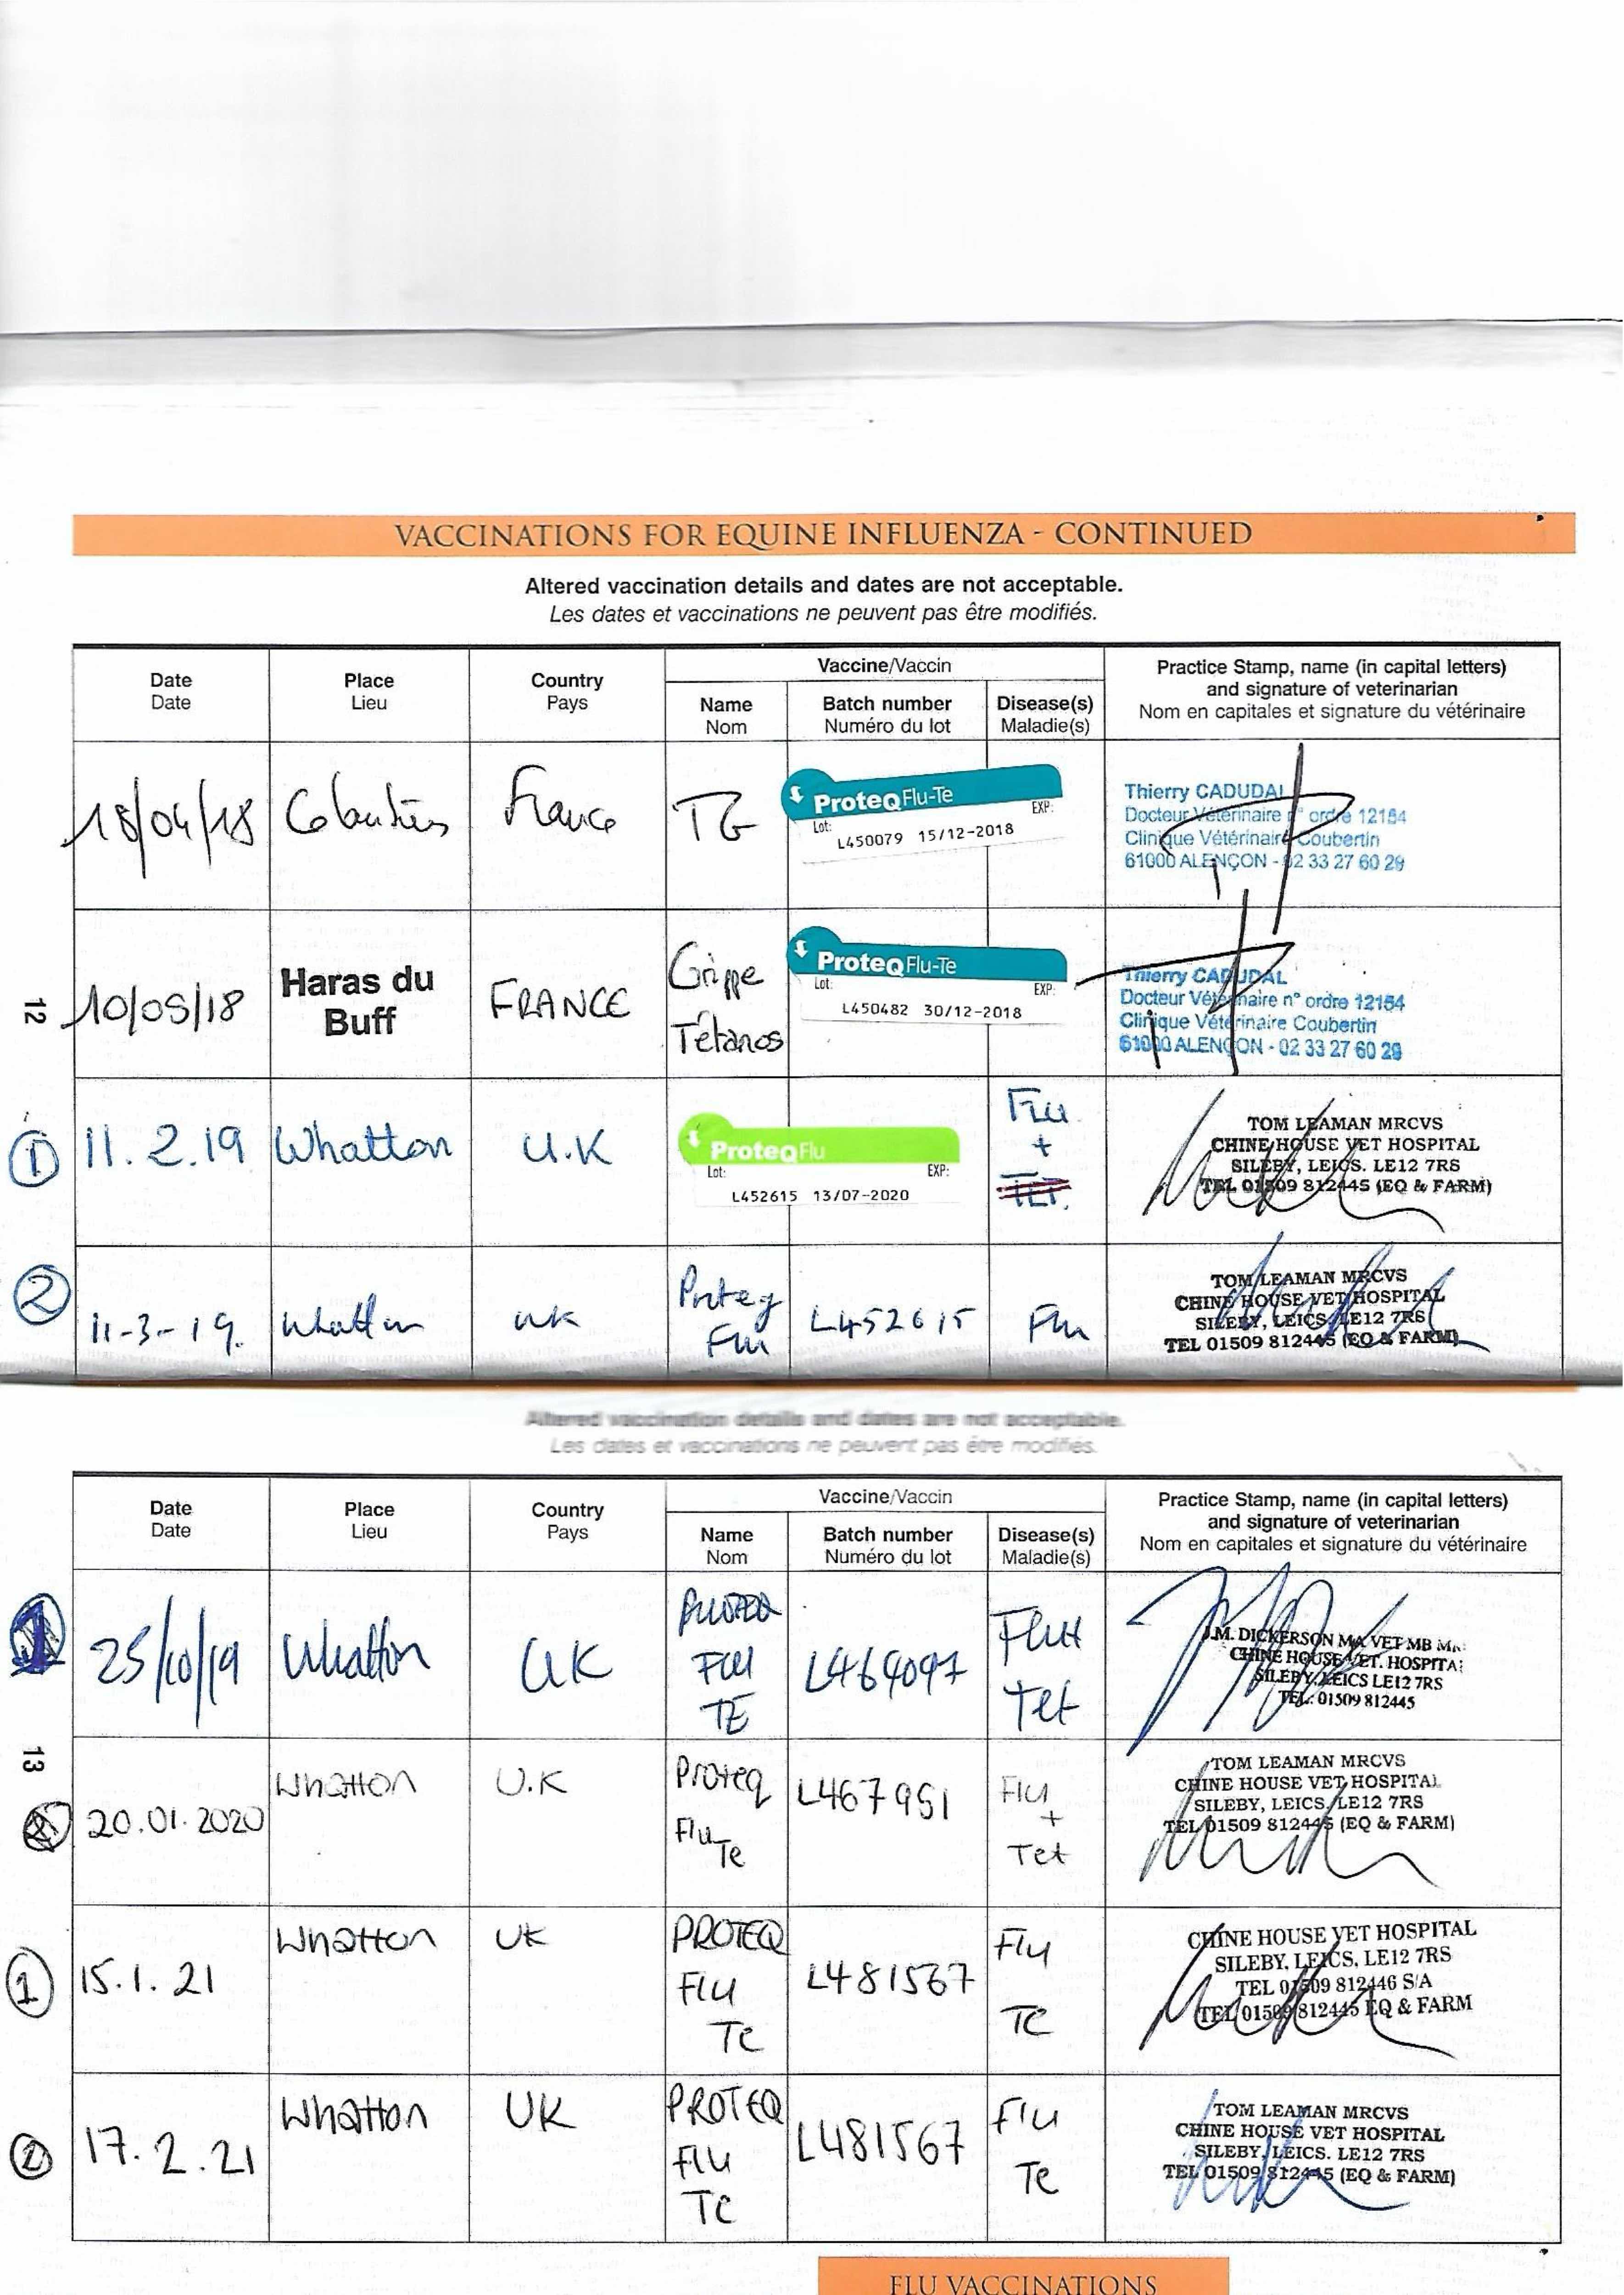 VACCINATIONS FOR EQUINE INFLUENZA - CONTINUED
Altered vaccination details and dates are not acceptable.
Les dates et vaccinations ne peuvent pas être modifiés.
Date Place Country Vaccine/Vaccin Practice Stamp, name (in capital letters)
Date Lieu Pays and signature of veterinarian
Name Batch number Disease(s) Nom en capitales et signature du vétérinaire
Nom Numéro du lot Maladie(s)
18/04/18 France TG ProteqFlu-Te
Lot: EXP:
L450079 15/12-2018
Thierry CADUDAL
Docteur Vétérinaire n° ordre 12154
Clinique Vétérinaire Coubertin
61000 ALENÇON - 02 33 27 60 29
12
10/05/18 Haras du Buff FRANCE Grippe Tétanos ProteqFlu-Te
Lot: EXP:
L450482 30/12-2018
Thierry CADUDAL
Docteur Vétérinaire n° ordre 12154
Clinique Vétérinaire Coubertin
61000 ALENÇON - 02 33 27 60 29
1 11.2.19 Whatton U.K ProteqFlu
Lot: EXP:
L452615 13/07-2020
Flu + TET.
TOM LEAMAN MRCVS
CHINE HOUSE VET HOSPITAL
SILEBY, LEICS. LE12 7RS
TEL 01509 812445 (EQ & FARM)
2 11-3-19. Whatton UK Proteq Flu L452615 Flu
TOM LEAMAN MRCVS
CHINE HOUSE VET HOSPITAL
SILEBY, LEICS. LE12 7RS
TEL 01509 812445 (EQ & FARM)
Altered vaccination details and dates are not acceptable.
Les dates et vaccinations ne peuvent pas être modifiés.
Date Place Country Vaccine/Vaccin Practice Stamp, name (in capital letters)
Date Lieu Pays and signature of veterinarian
Name Batch number Disease(s) Nom en capitales et signature du vétérinaire
Nom Numéro du lot Maladie(s)
1 25/10/19 Whatton UK FLU TE L464097 Flu Tet
J.M. DICKERSON MA VET MB
CHINE HOUSE VET. HOSPITA
SILEBY, LEICS LE12 7RS
TEL.: 01509 812445
13
20.01.2020 Whatton U.K Proteq Flu Te L467951 Flu + Tet
TOM LEAMAN MRCVS
CHINE HOUSE VET HOSPITAL
SILEBY, LEICS. LE12 7RS
TEL 01509 812445 (EQ & FARM)
1 15.1.21 Whatton UK PROTEQ Flu Te L481567 Flu Te
CHINE HOUSE VET HOSPITAL
SILEBY, LEICS, LE12 7RS
TEL 01509 812446 S/A
TEL 01509 812445 EQ & FARM
2 17.2.21 Whatton UK PROTEQ Flu Te L481567 Flu Te
TOM LEAMAN MRCVS
CHINE HOUSE VET HOSPITAL
SILEBY, LEICS. LE12 7RS
TEL 01509 812445 (EQ & FARM)
FLU VACCINATIONS